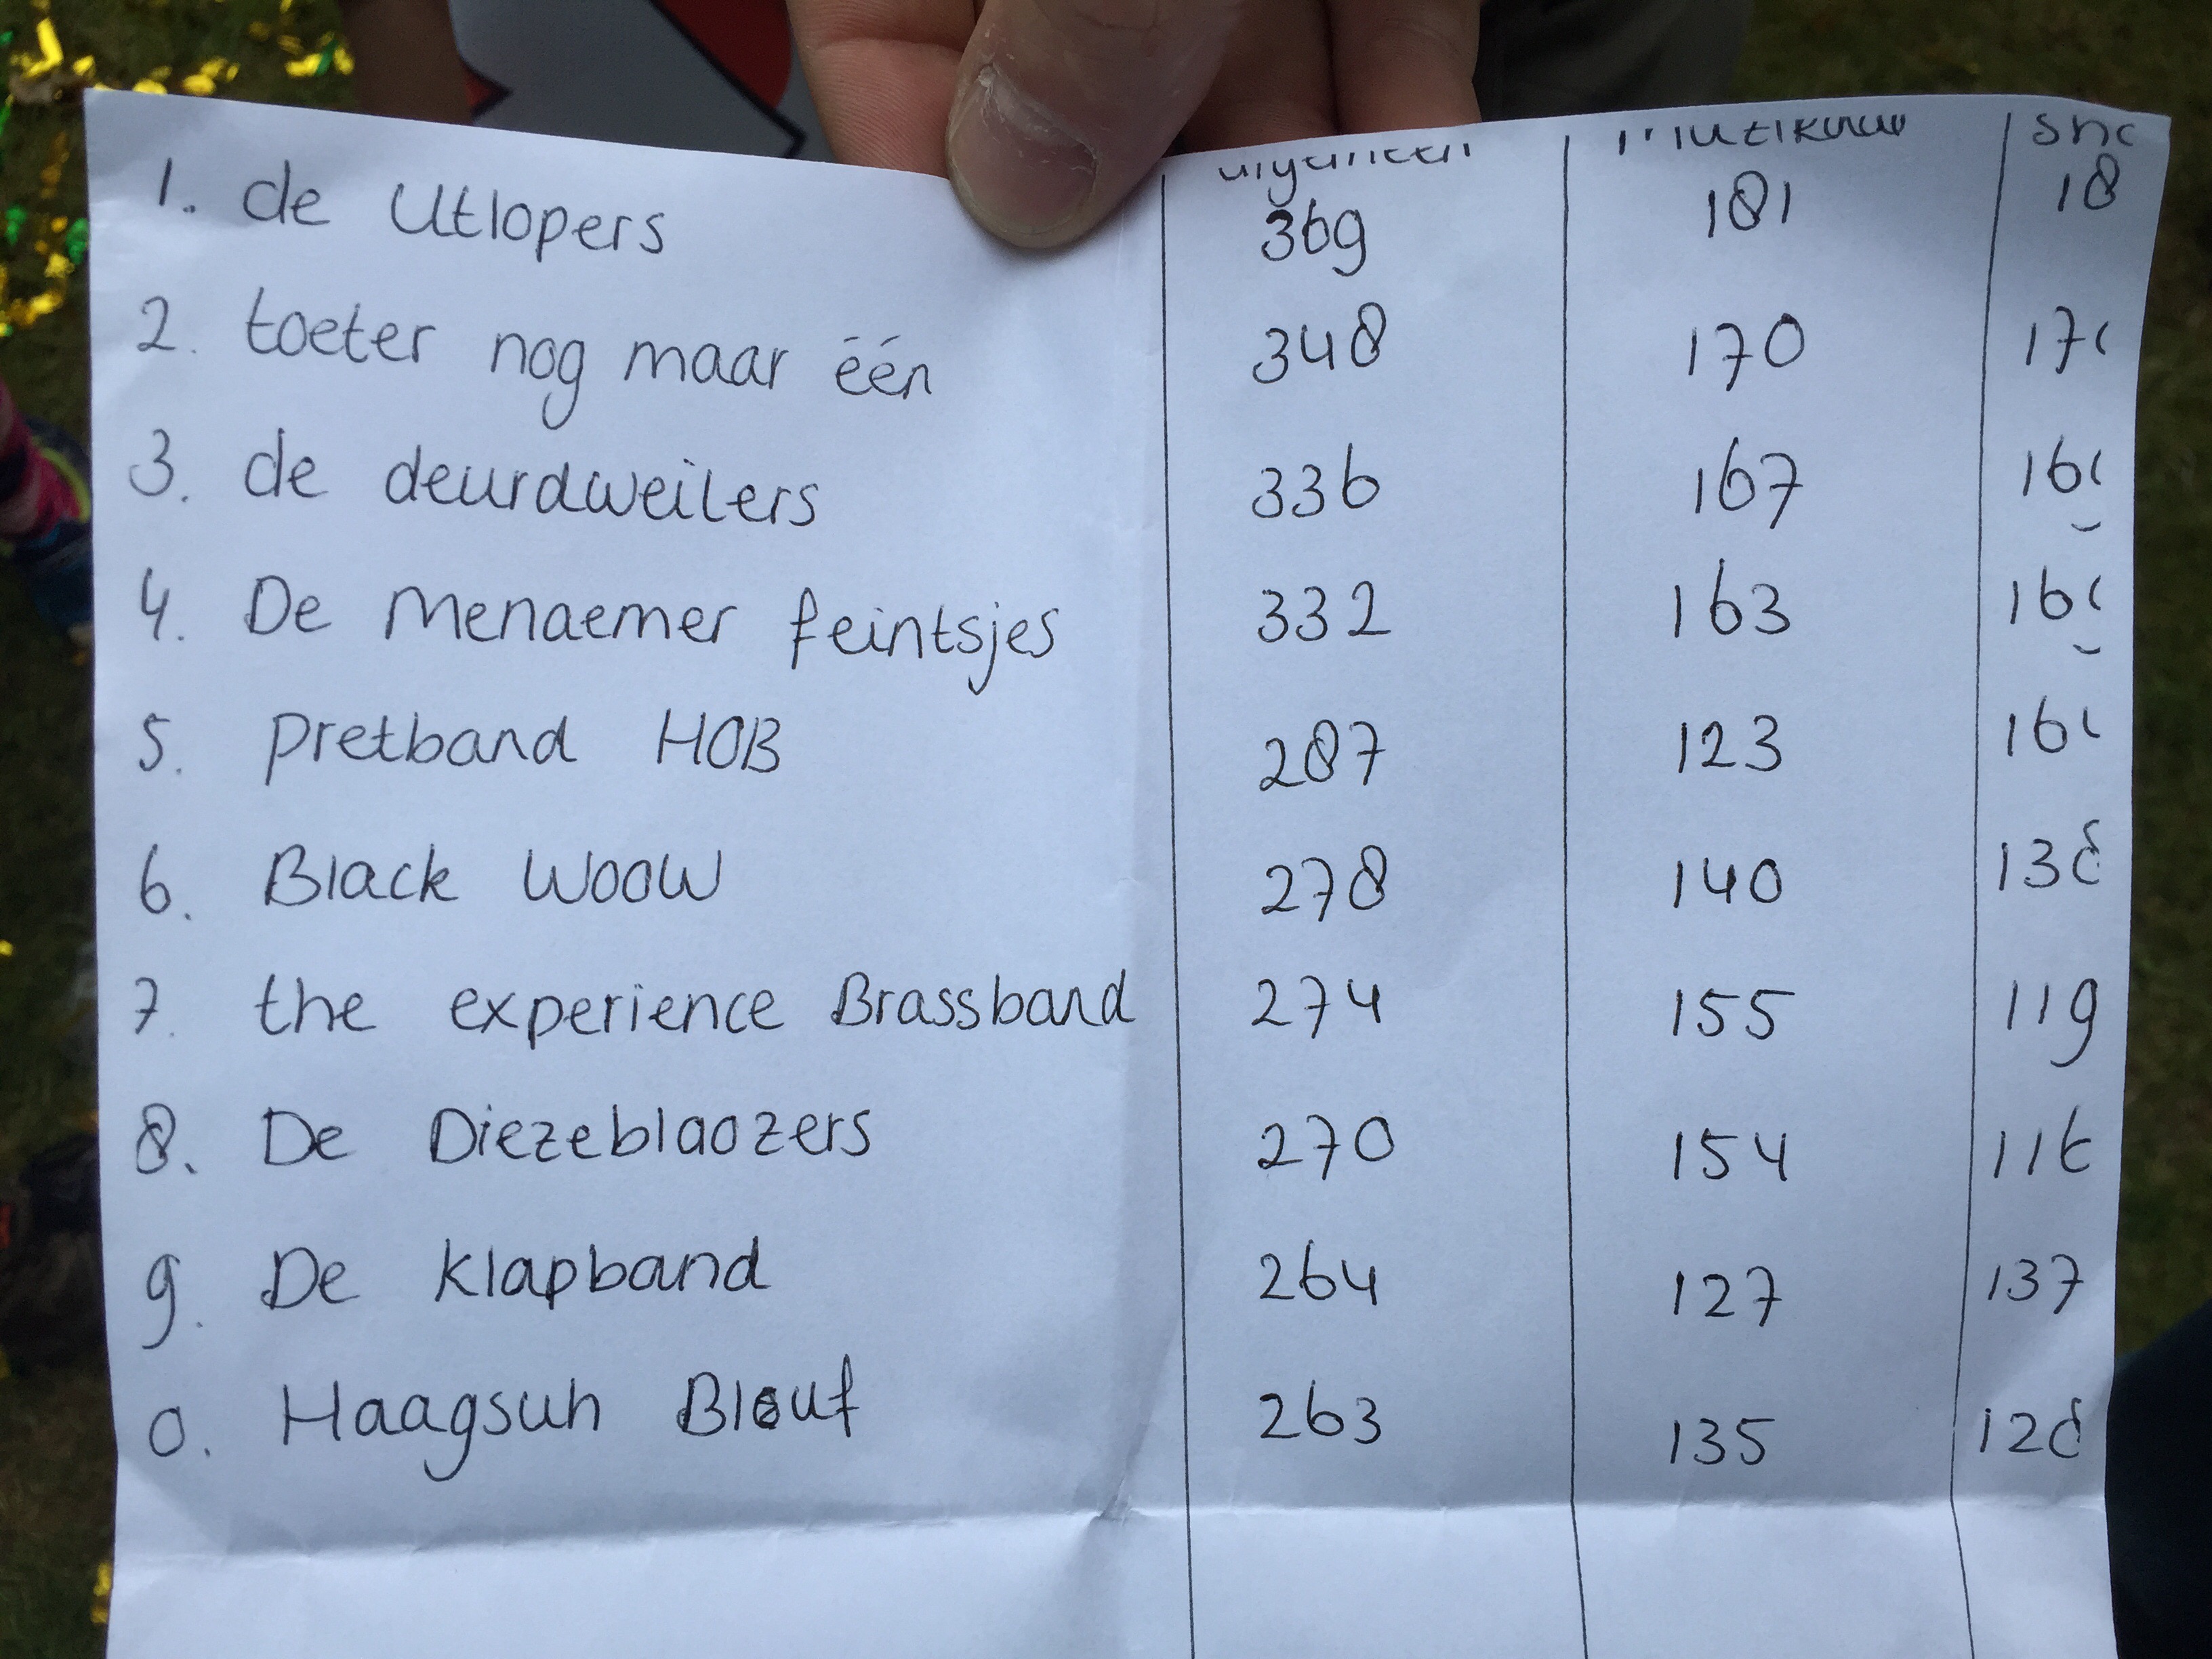 1. de Utlopers 369 181 18
2. toeter nog maar één 348 170
3. de deurdweilers 336 167
4. De Menaemer feintsjes 332 163
5. pretband HOB 287 123
6. Black WOOW 278 140
7. the experience Brassband 274 155 119
8. De Diezeblaozers 270 154
9. De Klapband 264 127 137
0. Haagsuh Bleuf 263 135